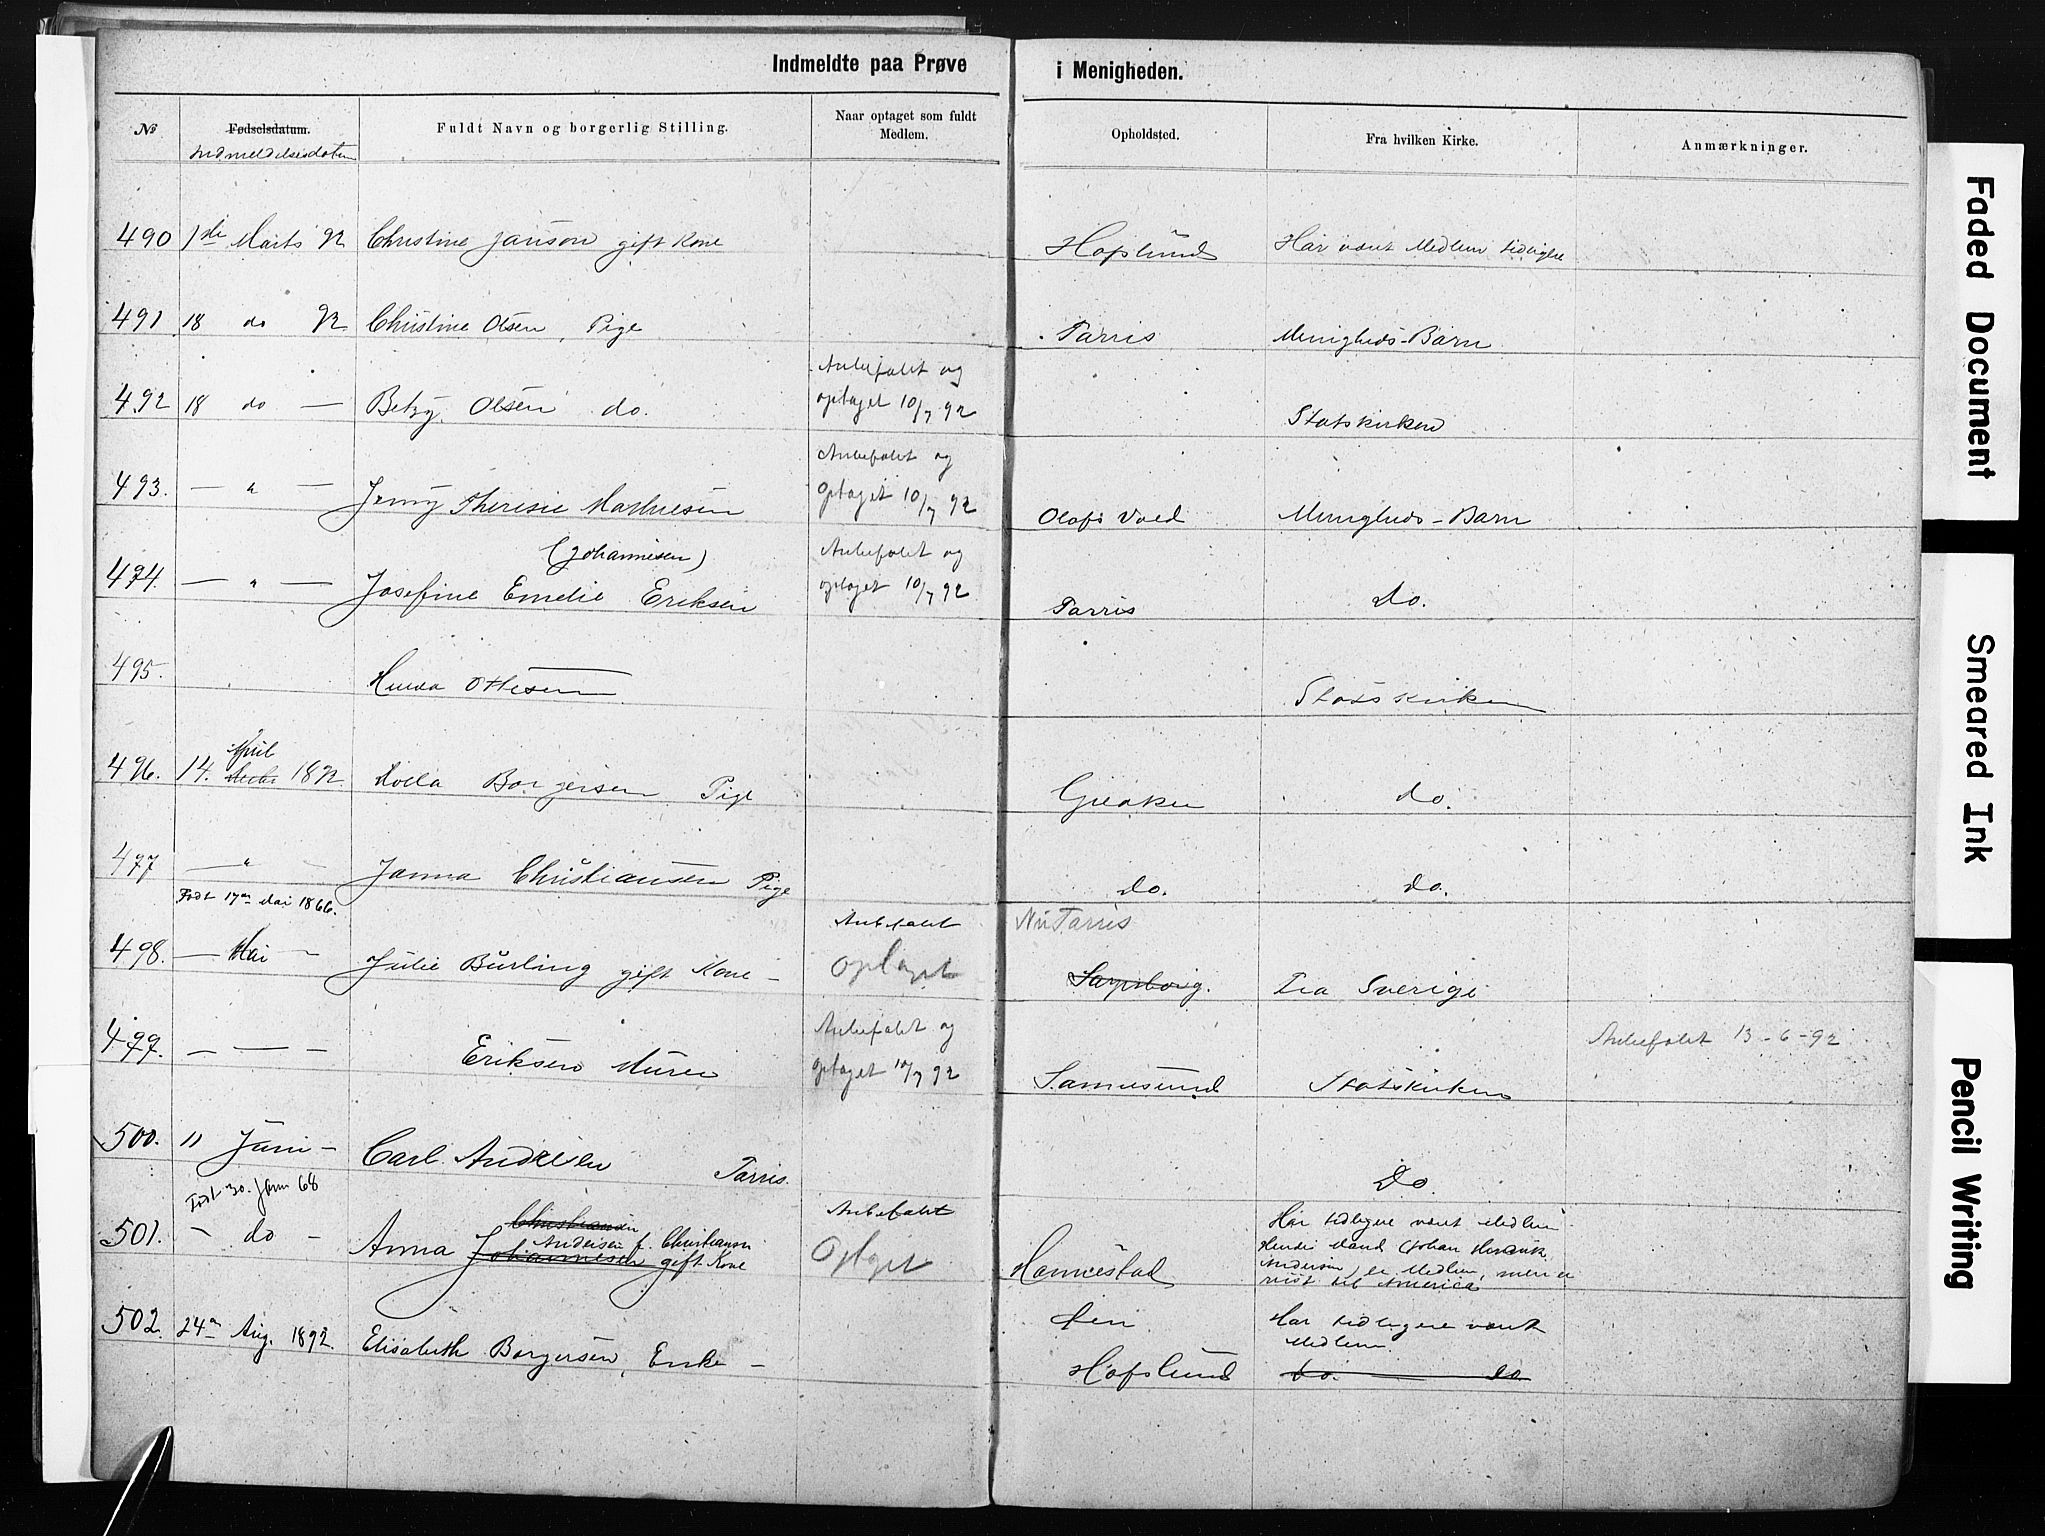 Indmeldte paa Prøve i Menigheden.
No Fødselsdatum. Fuldt Navn og borgerlig Stilling. Naar optaget som fuldt Medlem. Opholdsted. Fra hvilken Kirke. Anmærkninger.
Indmeldelsesdatum
490 1ste Marts 92 Christine Janson gift Kone Hafslund Har været Medlem tidligere
491 18 do 92 Christine Olsen, Pige Tarris Menigheds-Barn
Anbefalet og
492 18 do — Betzy Olsen do. optaget 10/7 92 Statskirken
Anbefalet og
493. — " — Jenny Theresie Mathiesen optaget 10/7 92 Olafs Vold Menigheds-Barn
(Johannesen) Anbefalet og
494. — " — Josefine Emelie Eriksen optaget 10/7 92 Tarris Do.
495. Hulda Ottesen Statskirken
April
496. 14. 1892. Lovla Borgersen Pige Greaker do.
497 — " - Janna Christiansen Pige do. do.
Født 17de Mai 1866. Anbefalet Nu Tarris
498. — Mai - Julie Burling gift Kone — Optaget Sarpsborg. Fra Sverige
Anbefalet og Anbefalet 13-6-92
499. — — - Eriksen Murer optaget 10/7 92 Sannesund Statskirken
500. 11 Juni — Carl Andresen Tarris. Do.
Født 30. Jan 68 Christiansen Anbefalet Har tidligere været Medlem
501. - do - Anna Johannesen Andersen f. Christiansen gift Kone Optaget Hannestad Hendes Mand (Johan Henrik
Andersen) er Medlem, men er
reist til America
502. 24de Aug. 1892. Elisabeth Borgersen, Enke — Hafslund Har tidligere været
Medlem.
do. do
Faded Document
Smeared Ink
Pencil Writing